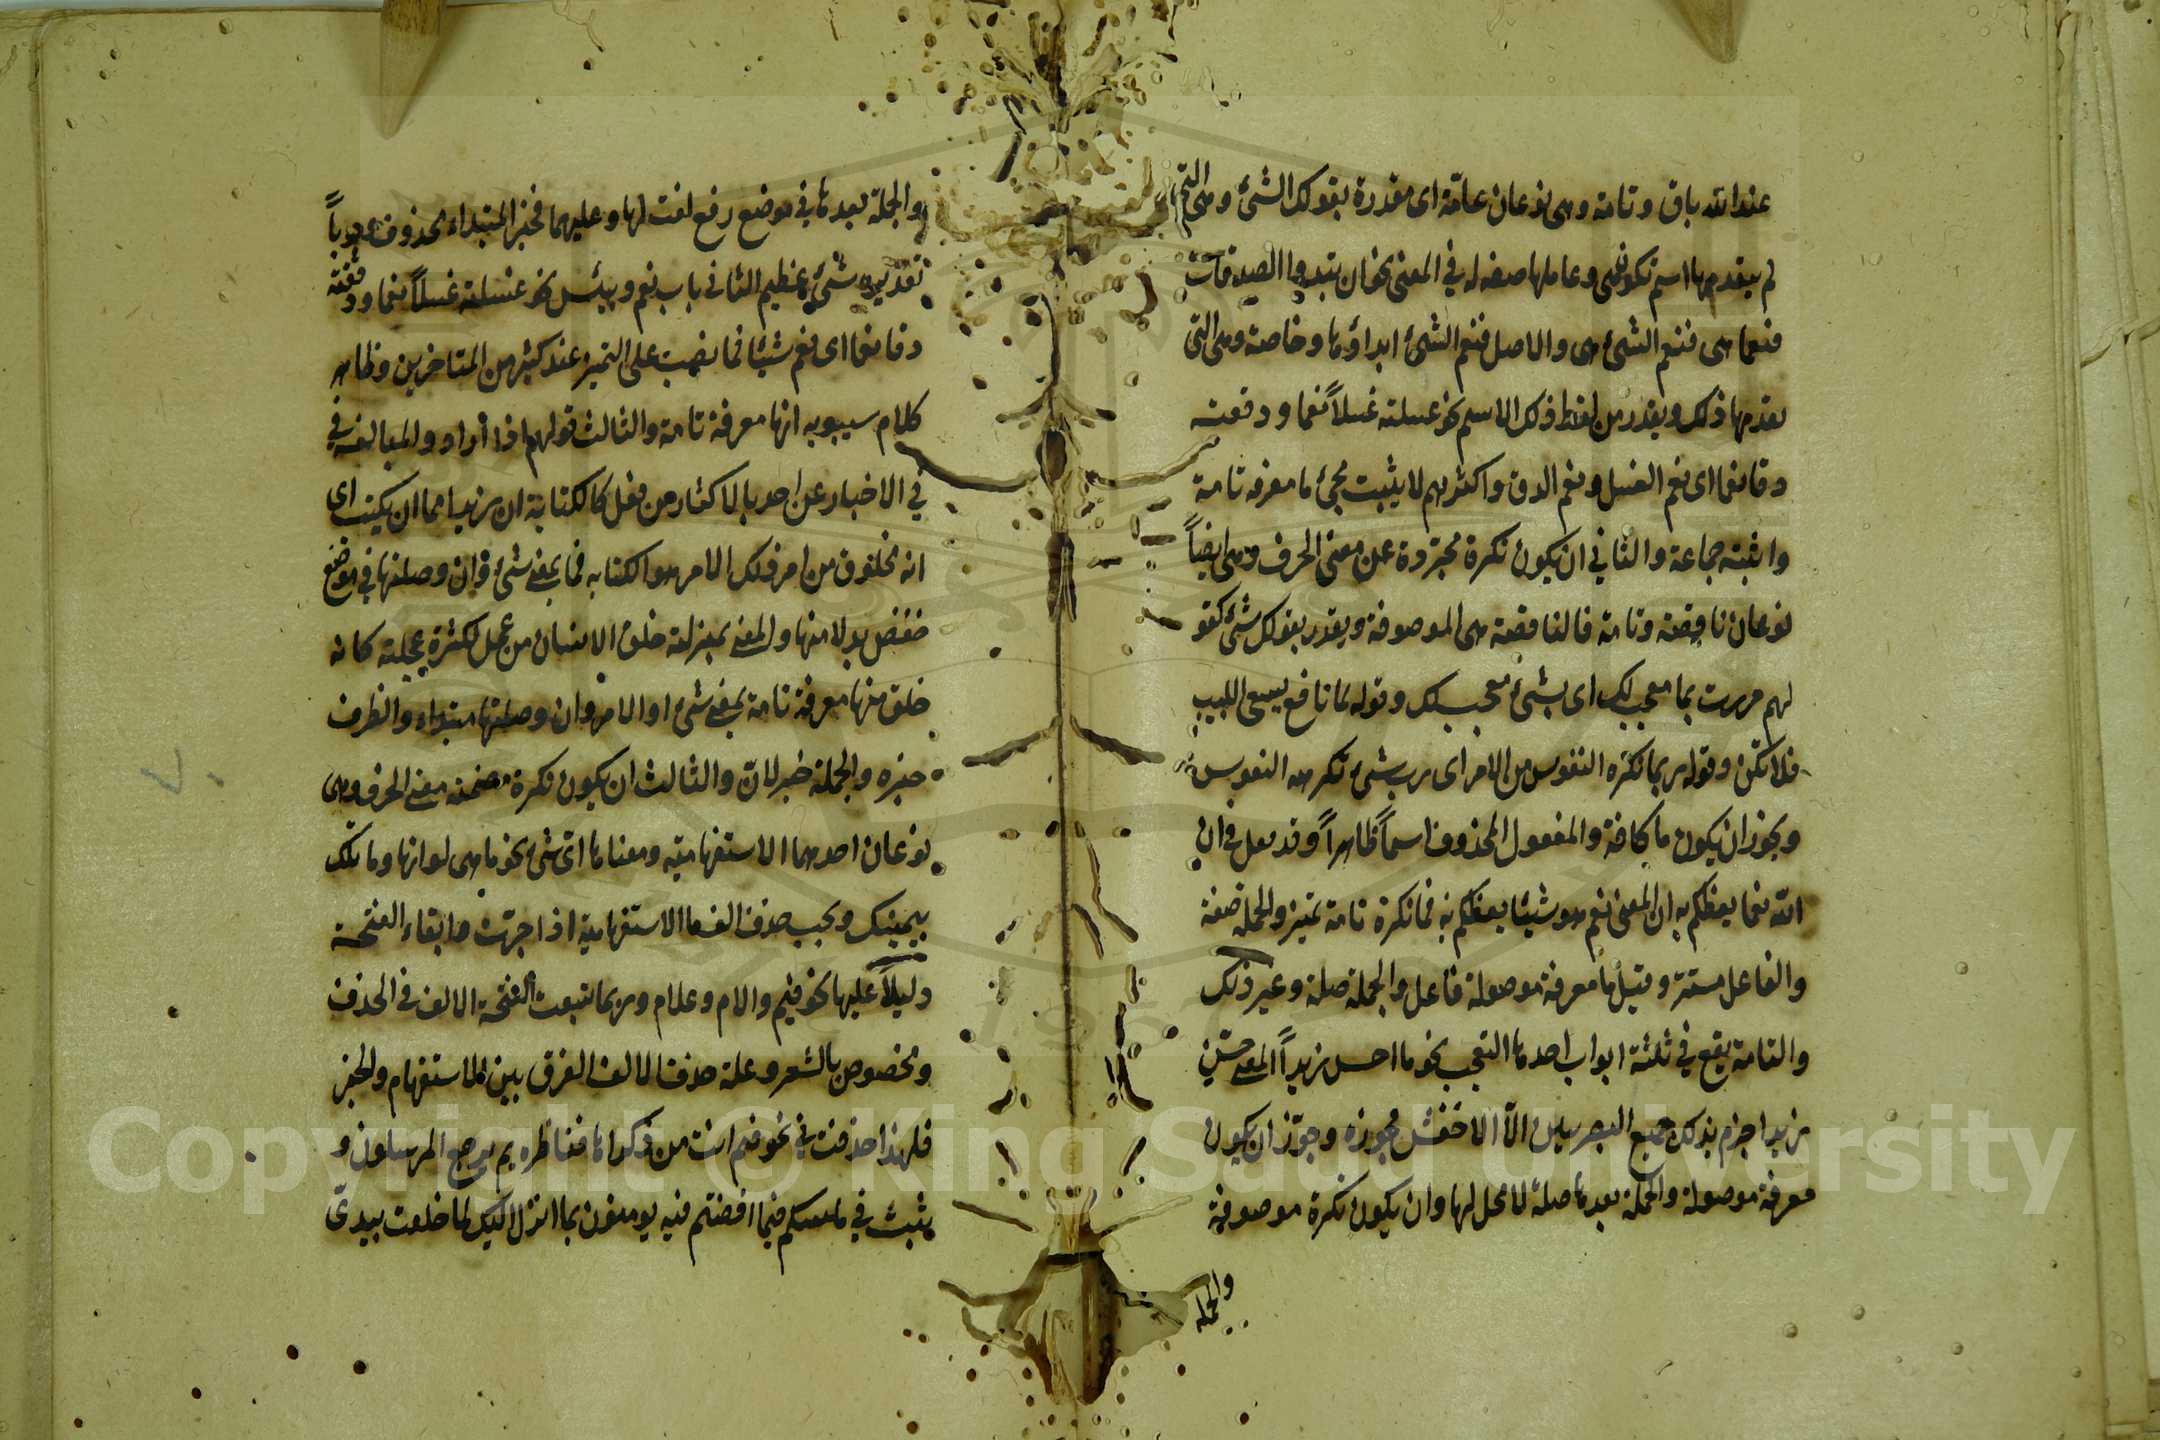 عند الله باق وتامة وهى نوعان عامّة اى مقدرة بقولك الشئ وهى التى
لم يتقدمها اسم تكون هى وعاملها صفة له فى المعنى نحو ان تبدوا الصدقات
فنعما هى فنعم الشئ هى والاصل فنعم الشئ ابداؤها وخاصة وهى التى
تقدمها ذلك ويقدر من لفظ ذلك الاسم نحو غسلته غسلاً نعما ودققته
دقا نعما اى نعم الغسل ونعم الدق واكثرهم لا يثبت مجئ ما معرفة تامة
واثبته جماعة والثانى ان يكون نكرة مجرّدة عن معنى الحرف وهى ايضاً
نوعان ناقصة وتامة فالناقصة هى الموصوفة ويقدر بقولك شئ كقو
لهم مررت بما معجب لك اى بشئ معجب لك وقوله لما نافع يسعى اللبيب
فلا تكن وقوله ربما تكره النفوس من الامر اى رب شئ تكرهه النفوس
ويجوز ان يكون ما كافة والمفعول المحذوف اسماً ظاهراً وقد قيل فى ان
الله نعما يعظكم به ان المعنى نعم هو شيئا يعظكم به فما نكرة تامة تميز والجملة صفة
والفاعل مستتر وقيل ما معرفة موصولة فاعل والجملة صلة وغير ذلك
والتامة يقع فى ثلثة ابواب احدها التعجب نحو ما احسن زيداً المعنى حسّن
زيدا جزم بذلك جميع البصريين الاّ الاخفش فجوزه وجوّز ان يكون
معرفة موصولة والجملة بعدها صلة لا محل لها وان يكون نكرة موصوفة
والجملة
والجملة بعدها فى موضع رفع لغت لها وعليهما فخبر المبتداء محذوف وجوباً
تقديره شئ عظيم الثانى باب نعم وبئس نحو غسلته غسلاً نعما ودققته
دقا نعما اى نعم شيئا فما نصب على التميز عند كثير من المتاخرين وظاهر
كلام سيبويه انها معرفة تامة والثالث قولهم اذا أرادوا المبالغة فى
فى الاخبار عن احد بالاكثار من فعل كالكتابة ان زيدا مما ان يكتب اى
انه مخلوق من امر ذلك الامر هو الكتابة فما بمعنى شئ وان وصلتها فى موضع
خفض بدلا منها والمعنى بمنزلة خلق الانسان من عجل لكثرة عجلته كانه
خلق منها معرفة تامة بمعنى شئ او الامر وان وصلتها مبتداء والظرف
خبره والجملة خبر لانّ والثالث ان يكون نكرة مضمنة معنى الحرف وهى
نوعان احدهما الاستفهاميّة ومعناها اىّ شئ نحو ما هى لونها وما تلك
بيمينك ويجب حذف الف ما الاستفهامية اذا جرّت وابقاء الفتحة
دليلاً عليها نحو فيم والام وعلام وربما تبعت الفتحة الالف فى الحذف
ومخصوص بالشعر وعلة حذف الالف الفرق بين الاستفهام والخبر
فلهذا حذفت فى نحو فيم انت من ذكراها فناظرة بم يرجع المرسلون و
يثبت فى لمسكم فيما افضتم فيه يومنون بما انزل اليك لما خلقت بيدىّ